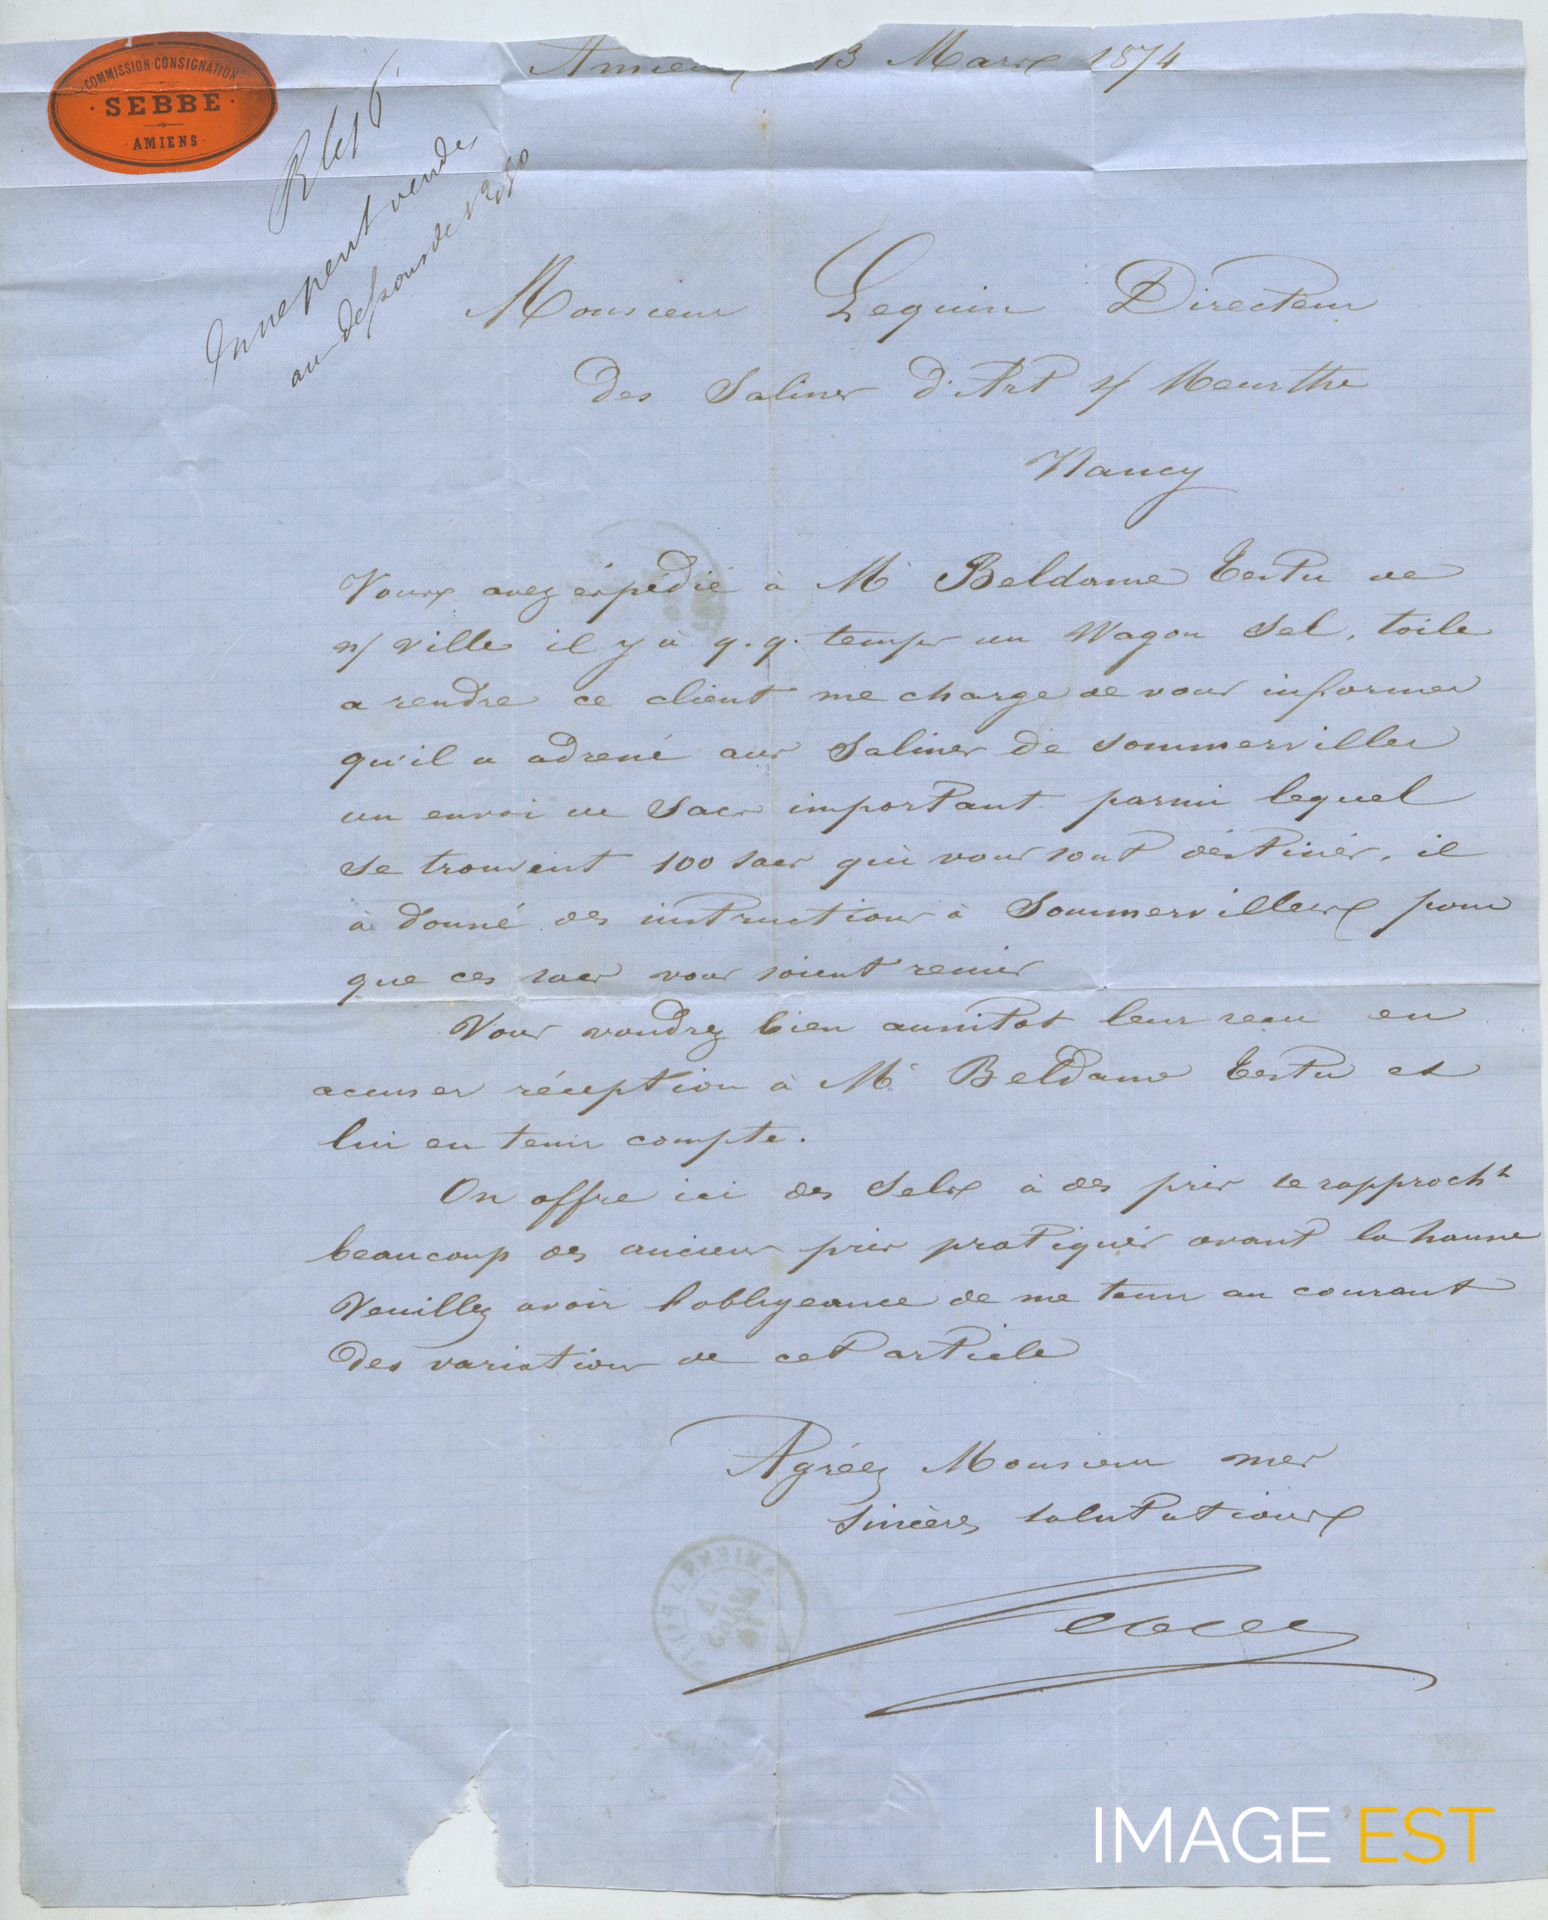 COMMISSION CONSIGNATION
SEBBE
AMIENS
Amiens 13 Mars 1874
R le 16
On ne peut vendre
au dessous de
Monsieur Lequin Directeur
des Salines d'Art s/ Meurthe
Nancy
Vous avez éxpédié à Mr Beldame Testu de
n/ ville il y à q.q. temps un Wagon Sel, toile
a rendre ce client me charge de vous informer
qu'il a adressé aux Salines de Sommerviller
un envoi de Sacs important parmi lequel
se trouvent 100 sacs qui vous sont déstinés, il
à donné des instructions à Sommervillers pour
que ces sacs vous soient remis
Vous voudrez bien aussitot leur reçu en
accuser réception à Mr Beldame Testu et
lui en tenir compte.
On offre ici des Sels à des prix se rapprocht
beaucoup des anciens prix pratiqués avant la hausse
Veuillez avoir l'obligeance de me tenir au courant
des variations de cet article
Agréez Monsieur mes
Sincères salutations
AMIENS
IMAGE EST